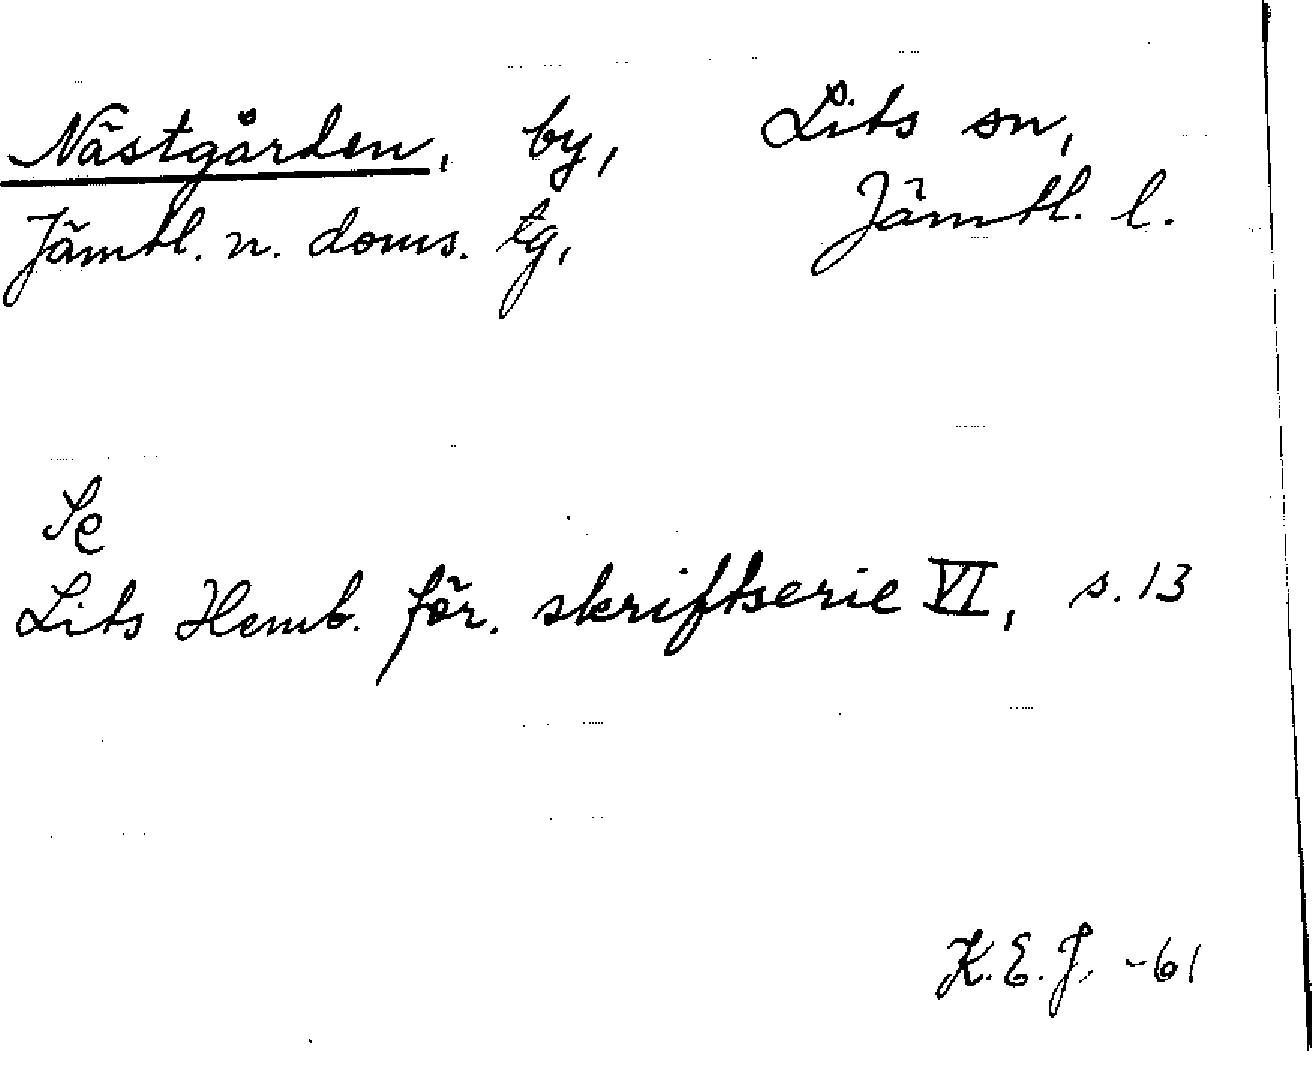 Nästgården, by, Lits sn,
Jämtl. n. doms. tg, Jämtl. l.
Se
Lits Hemb. för. skriftserie VI, s. 13
K. E. J. -61